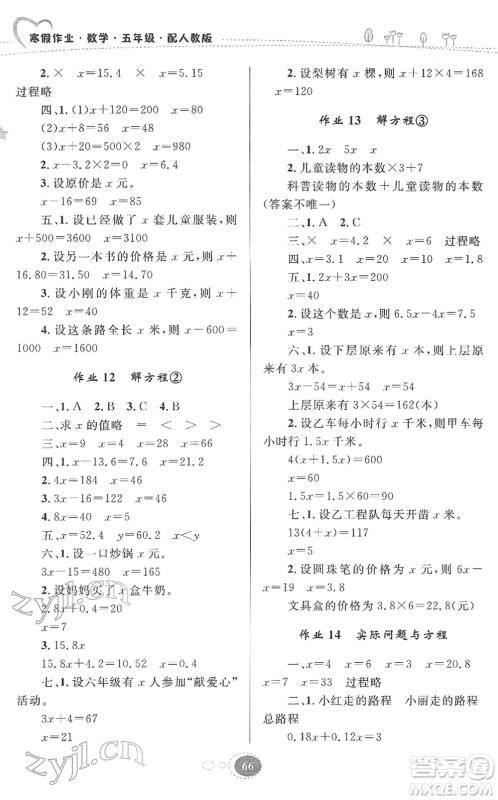 寒假作业·数学·五年级·配人教版
2. × x=15.4 × x=5.15
过程略
四、1. (1)x+120=800 x=680
(2)x+8=56 x=48
(3)x+20=1000 x=980
2. x-3.2×2=0 x=6.4
3. 设原价是 x 元。
x-16=69 x=85
五、1. 设已经做了 x 套儿童服装,则
x+500=3600 x=3100
2. 设另一本书的价格是 x 元,则 x+
16.80=31.50 x=14.70
3. 设小刚的体重是 x 千克,则 x+
12=52 x=40
4. 设这条路全长 x 米,则 x-600=
1000 x=1600
作业 12 解方程②
一、1. A 2. B 3. C 4. B
二、求 x 的值略 = < > >
三、x=9 x=4 x=27
四、1. x-13.6=7.1 x=20.7
2. 6x-30=24 x=9
3. 2x-8=122 x=65
4. 8x=40 x=5
五、x=44 y=60.2 x<y
六、1. 设一口炒锅 x 元。
3x-15=180 x=65
2. 设妈妈买了 x 盒牛奶。
2.8x+0.4=20
x=7
3. (1)5.8x
15.8x+4=162 x=10
七、1. 设六年级有 x 人参加“献爱心”
活动。
3x+4=67
x=21
2. 设梨树有 x 棵,则 x+4+2x=168
x=120
作业 13 解方程③
一、1. 2x 5x x
2. 儿童读物的本数×3+7
科普读物的本数+儿童读物的本数
(答案不唯一)
二、1. A 2. C
三、× x=4 × x=6 过程略
四、x=4 x=10 x=10
五、1. 2x+x=120
x=40
2. 设这个数是 x,则 6.5x-4x=7.5
x=3
六、1. 设下层原来有 x 本,则上层原
来有 3x 本。
3x-54=x+54 x=54
上层原来有 3×54=162(本)
2. 设乙车每小时行 x 千米,则甲车每
小时行 1.5x 千米。
4(x+1.5x)=600
x=60
1.5x=1.5×60=90
3. 设乙工程队每天开凿 x 米。
13(4+x)=117
x=5
4. 设圆珠笔的价格为 x 元,则 6x-
x=19 x=3.8
文具盒的价格为 3.8×6=22.8(元)
作业 14 实际问题与方程
一、x=4 x=3 x=20.8
x=23 过程略
二、1. 小红走的路程 小丽走的路程
总路程
0.18x+0.3x=12
66